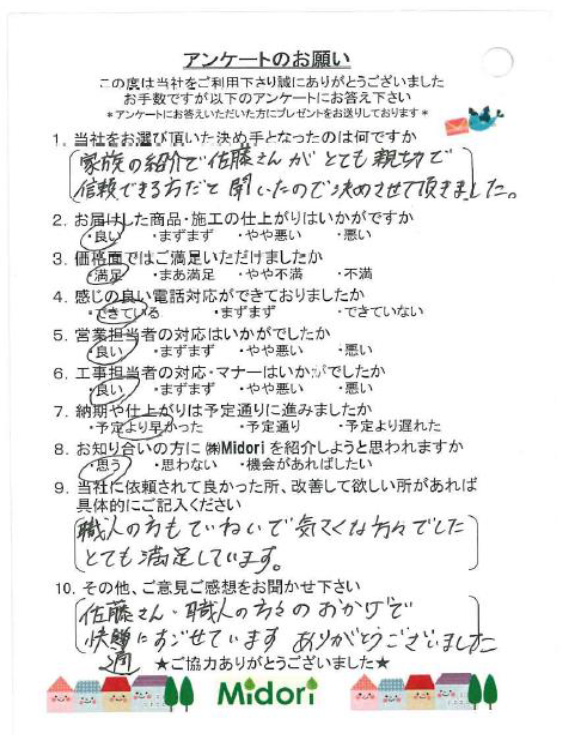 アンケートのお願い
この度は当社をご利用下さり誠にありがとうございました
お手数ですが以下のアンケートにお答え下さい
＊アンケートにお答えいただいた方にプレゼントをお送りしております＊
1. 当社をお選び頂いた決め手となったのは何ですか
家族の紹介で佐藤さんがとても親切で
信頼できる方だと聞いたので決めさせて頂きました。
2. お届けした商品・施工の仕上がりはいかがですか
・良い ・まずまず ・やや悪い ・悪い
3. 価格面ではご満足いただけましたか
・満足 ・まあ満足 ・やや不満 ・不満
4. 感じの良い電話対応ができておりましたか
・できている ・まずまず ・できていない
5. 営業担当者の対応はいかがでしたか
・良い ・まずまず ・やや悪い ・悪い
6. 工事担当者の対応・マナーはいかがでしたか
・良い ・まずまず ・やや悪い ・悪い
7. 納期や仕上がりは予定通りに進みましたか
・予定より早かった ・予定通り ・予定より遅れた
8. お知り合いの方に㈱Midoriを紹介しようと思われますか
・思う ・思わない ・機会があればしたい
9. 当社に依頼されて良かった所、改善して欲しい所があれば
具体的にご記入ください
職人の方もていねいで気さくな方々でした
とても満足しています。
10. その他、ご意見ご感想をお聞かせ下さい
佐藤さん・職人の方々のおかげで
快適にすごせています ありがとうございました
適
★ご協力ありがとうございました★
Midori